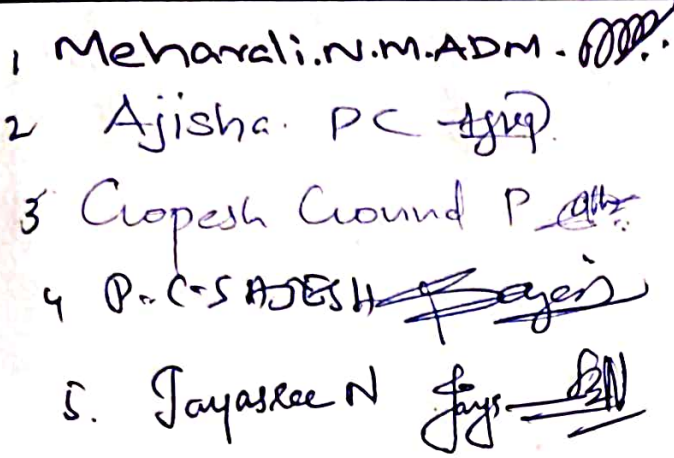 1 Meharali.N.M.ADM.
2 Ajisha. PC
3 Gopesh Govind P
4 P.C.SAJESH
5. Jayasree N